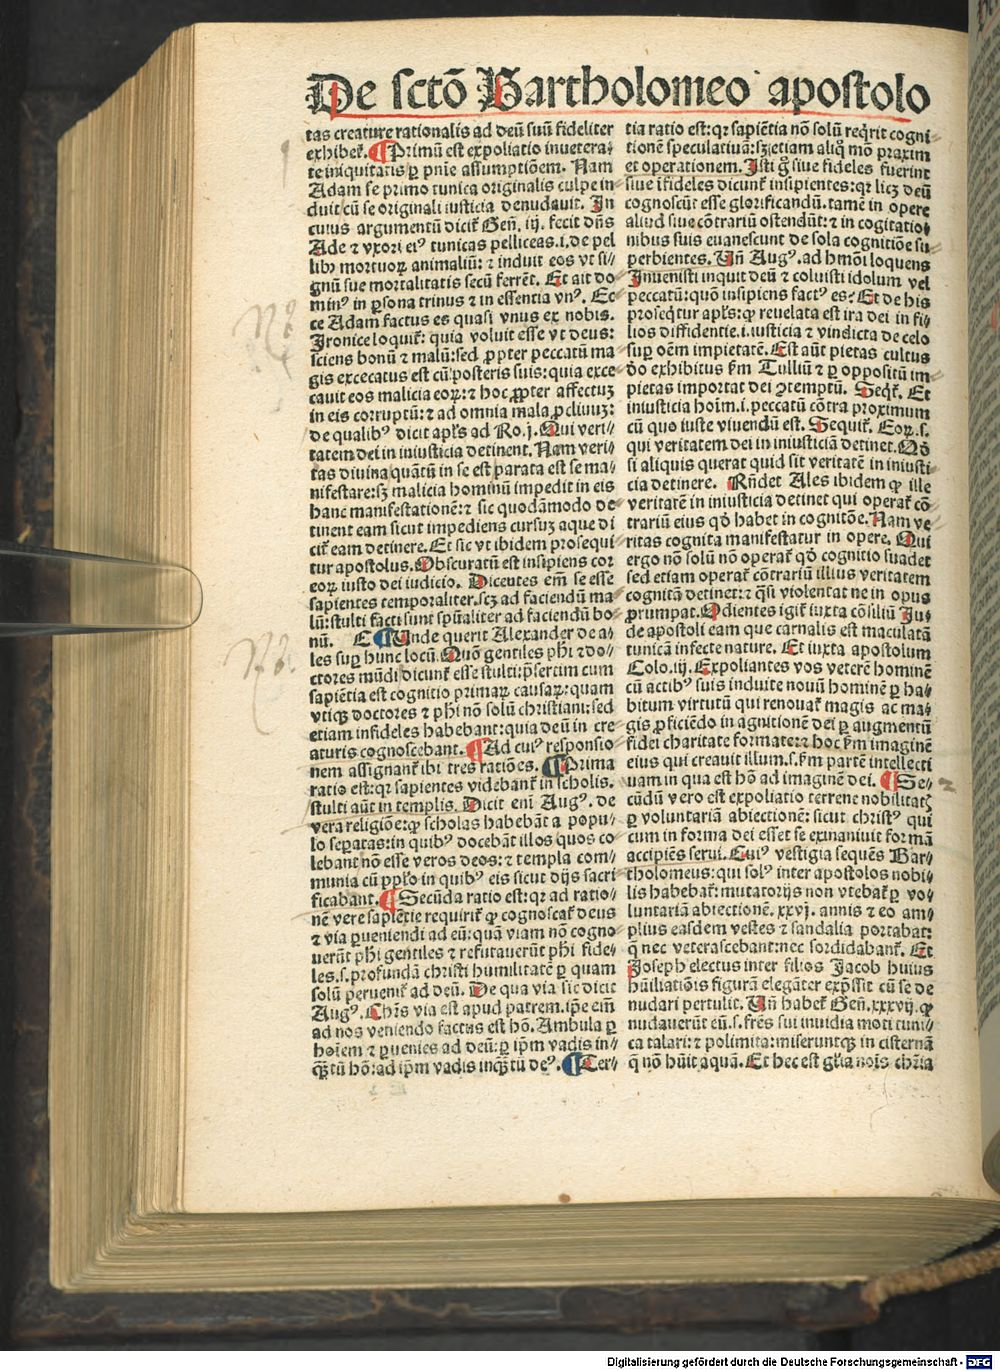 De sctō Bartholomeo apostolo
tas creature rationalis ad deū suū fideliter
exhibet᷑. ¶ Primū est expoliatio inuetera/
te iniquitatis ꝑ pnie assumptiōem. Nam
Adam se primo tunica originalis culpe in
duit cū se originali iusticia denudauit. In
cuius argumentū dicit᷑ Geñ. iij. fecit dñs
Ade ⁊ vxori eiꝰ tunicas pelliceas.i.de pel
libꝰ mortuoꝝ animaliū: ⁊ induit eos vt si/
gnū sue mortalitatis secū ferrēt. Et ait do
minꝰ in ꝑsona trinus ⁊ in essentia vnꝰ. Ec
ce Adam factus es quasi vnus ex nobis.
Ironice loquit᷑: quia voluit esse vt deus:
sciens bonū ⁊ malū: sed ꝓpter peccatū ma
gis excecatus est cū posteris suis: quia exce
cauit eos malicia eoꝝ: ⁊ hoc ꝓpter affectuꝫ
in eis corruptū: ⁊ ad omnia mala ꝓcliuuꝫ:
de qualibꝰ dicit apl̄s ad Ro.j. Qui veri/
tatem dei in iniusticia detinent. Nam veri/
tas diuina quātū in se est parata est se ma/
nifestare: sꝫ malicia hominū impedit in eis
hanc manifestationē: ⁊ sic quodāmodo de
tinent eam sicut impediens cursuꝫ aque di
cit᷑ eam detinere. Et sic vt ibidem prosequi
tur apostolus. Obscuratū est insipiens cor
eoꝝ iusto dei iudicio. Dicentes em̄ se esse
sapientes temporaliter.scꝫ ad faciendū ma
lū: stulti facti sunt spūaliter ad faciendū bo
nū. E ¶ Unde querit Alexander de a/
les suꝑ hunc locū. Quō gentiles phi ⁊ do/
ctores mūdi dicunt᷑ esse stulti: p̄sertim cum
sapiētia est cognitio primaꝝ causaꝝ: quam
vtiqꝫ doctores ⁊ phi nō solū christiani: sed
etiam infideles habebant: quia deū in cre
aturis cognoscebant. ¶ Ad cuiꝰ responsio
nem assignant᷑ ibi tres ratiōes. ¶ Prima
ratio est: qꝛ sapientes videbant᷑ in scholis.
stulti aūt in templis. Dicit eni Augꝰ. de
vera religiōe: ꝙ scholas habebāt a popu/
lo seꝑatas: in quibꝰ docebāt illos quos co
lebant nō esse veros deos: ⁊ templa com/
munia cū ppl̄o in quibꝰ eis sicut dijs sacri
ficabant. ¶ Secūda ratio est: qꝛ ad ratio/
nē vere sapiētie requirit᷑ ꝙ cognoscat᷑ deus
⁊ via ꝑueniendi ad eū: quā viam nō cogno
uerūt phi gentiles ⁊ refutauerūt phi fide/
les.s. profundā christi humilitatē ꝑ quam
solū peruenit᷑ ad deū. De qua via sic dicit
Augꝰ. Chr̄s via est apud patrem. ip̄e em̄
ad nos veniendo factus est hō. Ambula ꝑ
hoīem ⁊ ꝑuenies ad deū: ꝑ ip̄m vadis in/
qꝫtū hō: ad ip̄m vadis inqꝫtū deꝰ. ¶ Ter/
tia ratio est: qꝛ sapiētia nō solū req̇rit cogni/
tionē speculatiuā: sꝫ etiam aliq̄ mō praxim
et operationem. Isti g̊ siue fideles fuerint
siue īfideles dicunt᷑ insipientes: qꝛ licꝫ deū
cognoscūt esse glorificandū. tamē in opere
aliud siue cōtrariū ostendūt: ⁊ in cogitatio/
nibus suis euanescunt de sola cognitiōe su/
perbientes. Uñ Augꝰ. ad hm̄oi loquens
Inuenisti inquit deū ⁊ coluisti idolum vel
peccatū: quō insipiens factꝰ es? Et de his
proseq̇tur apl̄s: ꝙ reuelata est ira dei in fi/
lios diffidentie.i.iusticia ⁊ vindicta de celo
suꝑ oēm impietatē. Est aūt pietas cultus
dō exhibitus ẜm Tulliū ⁊ ꝑ oppositū im/
pietas importat dei ꝯtemptū. Seqt᷑. Et
iniusticia hoīm.i.peccatū cōtra proximum
cū quo iuste viuendū est. Sequit᷑. Eoꝝ.s.
qui veritatem dei in iniusticiā detinet. Qd̄
si aliquis querat quid sit veritatē in iniusti/
cia detinere. Rñdet Ales ibidem ꝙ ille
veritatē in iniusticia detinet qui operat᷑ cō/
trariū eius qd̄ habet in cognitōe. Nam ve
ritas cognita manifestatur in opere. Qui
ergo nō solū nō operat᷑ qd̄ cognitio suadet
sed etiam operat᷑ cōtrariū illius veritatem
cognitā detinet: ⁊ q̄si violentat ne in opus
ꝓrumpat. Odientes igit᷑ iuxta cōsiliū Ju/
de apostoli eam que carnalis est maculatā
tunicā infecte nature. Et iuxta apostolum
Colo.iij. Expoliantes vos veterē hominē
cū actibꝰ suis induite nouū hominē ꝑ ha/
bitum virtutū qui renouat᷑ magis ac ma/
gis ꝓficiēdo in agnitionē dei ꝑ augmentū
fidei charitate formate: ⁊ hoc ẜm imaginē
eius qui creauit illum.s.ẜm partē intellecti
uam in qua est hō ad imaginē dei. ¶ Se/
cūdū vero est expoliatio terrene nobilitatꝭ
ꝑ voluntariā abiectionē: sicut christꝰ qui
cum in forma dei esset se exinaniuit formā
accipiēs serui. Cuiꝰ vestigia sequēs Bar/
tholomeus: qui solꝰ inter apostolos nobi/
lis habebat᷑: mutatorijs non vtebat᷑ ꝑ vo/
luntariā abiectionē. xxvj. annis ⁊ eo am/
plius easdem vestes ⁊ sandalia portabat:
q̄ nec veterascebant: nec sordidabant᷑. Et
Joseph electus inter filios Jacob huius
hūiliatiōis figurā elegāter exp̄ssit cū se de
nudari pertulit. Uñ habet᷑ Geñ.xxxvij. ꝙ
nudauerūt eū.s.fr̄es sui inuidia moti tuni/
ca talari: ⁊ polimita: miseruntqꝫ in cisternā
q̄ nō hūit aquā. Et hec est gl̄ia noīs chr̄ia